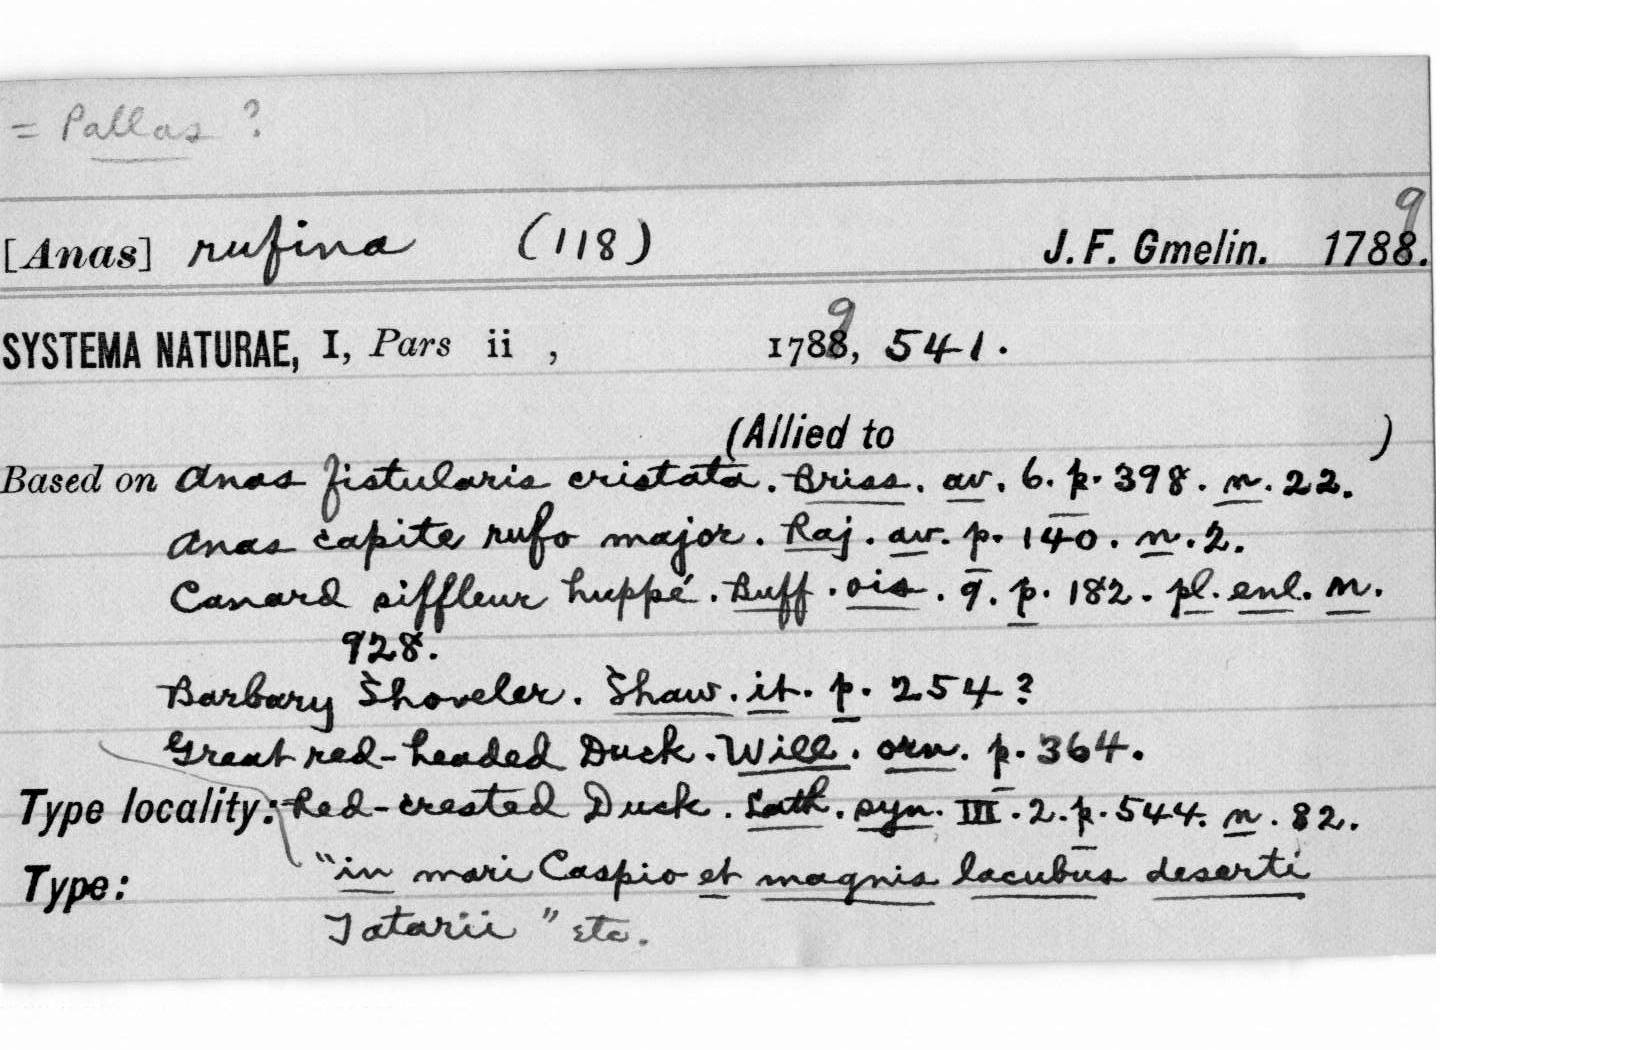 = Pallas ?
[Anas] rufina (118) J. F. Gmelin. 1788. 9
SYSTEMA NATURAE, I, Pars ii , 1788, 9 541.
(Allied to )
Based on Anas fistularis cristata. Briss. av. 6. p. 398. n. 22.
Anas capite rufo major. Raj. av. p. 140. n. 2.
Canard siffleur huppé. Buff. ois. 9. p. 182. pl. enl. n.
928.
Barbary Shoveler. Shaw. it. p. 254?
Great red-headed Duck. Will. orn. p. 364.
Type locality: Red-crested Duck. Lath. syn. III. 2. p. 544. n. 82.
Type: "in mari Caspio et magnis lacubus deserti
Tatarii" etc.